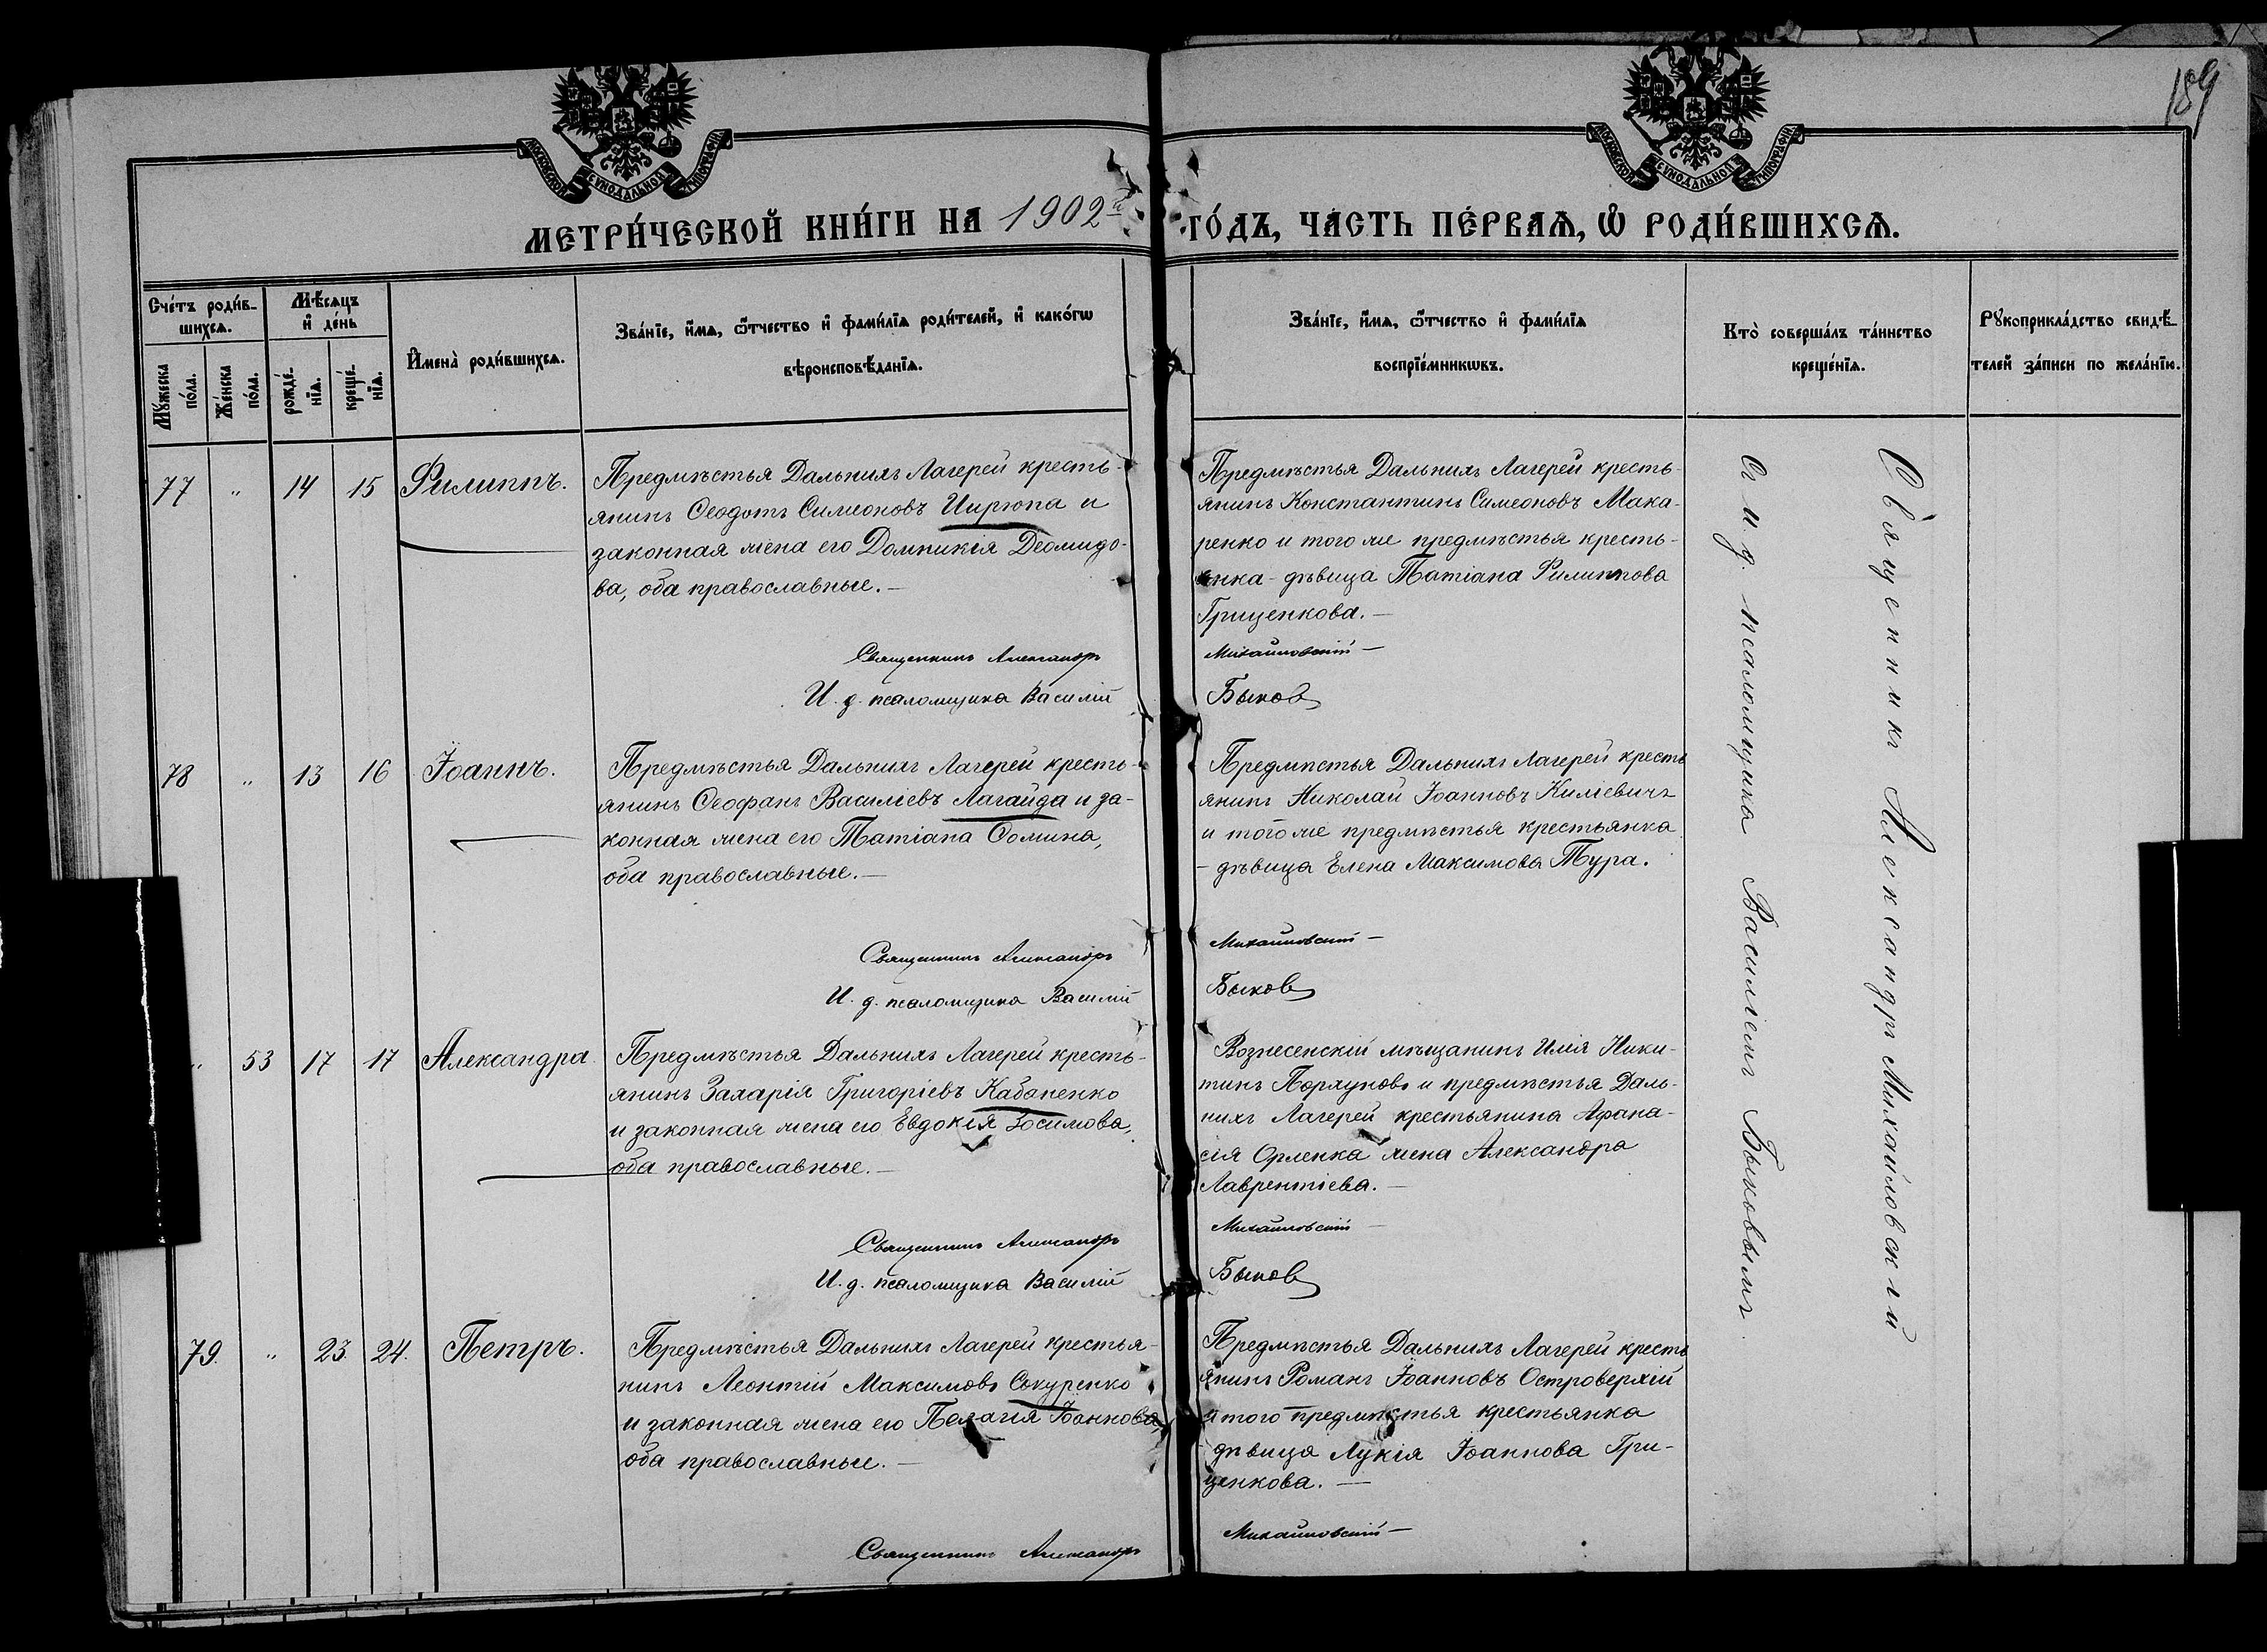 189
МЕТРИ́ЧЕСКОЙ КНИ́ГИ НА 1902й ГО́ДЪ, ЧА́СТЬ ПЕ́РВАѦ, Ѡ҆ РОДИ́ВШИХСѦ.
Сче́тъ роди́в-
шихсѧ.
Мꙋ́жеска по́ла.
Же́нска по́ла.
Мѣ́сѧцъ
и҆ де́нь
рожде́-
нїѧ.
креще́-
нїѧ.
И҆мена̀ роди́вшихсѧ.
Зва́нїе, и҆́мѧ, ѻ҆́тчество и҆ фами́лїѧ роди́телей, и҆ како́гѡ
вѣроисповѣ́данїѧ.
Зва́нїе, и҆́мѧ, ѻ҆́тчество и҆ фами́лїѧ
воспрїе́мникѡвъ.
Кто̀ соверша́лъ та́инство
креще́нїѧ.
Рꙋкоприкла́дство свидѣ́-
телей за́писи по жела́нїю.
77 " 14 15 Филиппъ.
Предмѣстья Дальнихъ Лагерей кресть-
янинъ Ѳеодотъ Симеоновъ Цирюпа и
законная жена его Домникія Деомидо-
ва, оба православные.—
Священникъ Александръ
И. д. псаломщика Василій
Предмѣстья Дальнихъ Лагерей кресть-
янинъ Константинъ Симеоновъ Мака-
ренко и того же предмѣстья кресть-
янка - дѣвица Татіана Филиппова
Гриценкова.—
Михайловскій —
Быковъ
78 " 13 16 Іоаннъ.
Предмѣстья Дальнихъ Лагерей кресть-
янинъ Ѳеофанъ Василіевъ Лагайда и за-
конная жена его Татіана Ѳомина,
оба православные.—
Священникъ Александръ
И. д. псаломщика Василій
Предмѣстья Дальнихъ Лагерей кресть
янинъ Николай Іоанновъ Киліевичъ
и того же предмѣстья крестьянка
- дѣвица Елена Максимова Тура.
Михайловскій —
Быковъ
" 53 17 17 Александра.
Предмѣстья Дальнихъ Лагерей кресть-
янинъ Захарія Григоріевъ Кабаненко
и законная жена его Евдокія Зосимова,
оба православные.—
Священникъ Александръ
И. д. псаломщика Василій
Вознесенскій мѣщанинъ Илія Ники-
тинъ Порхуновъ и предмѣстья Даль-
нихъ Лагерей крестьянина Афана-
сія Орленка жена Александра
Лаврентіева.—
Михайловскій —
Быковъ
79. " 23. 24. Петръ.
Предмѣстья Дальнихъ Лагерей крестья-
нинъ Леонтій Максимовъ Сокуренко
и законная жена его Пелагія Іоаннова,
оба православные.—
Священникъ Александръ
Предмѣстья Дальнихъ Лагерей кресть
янинъ Романъ Іоанновъ Островерхій
и того предмѣстья крестьянка
- дѣвица Лукія Іоаннова Гри-
ценкова.—
Михайловскій —
Священникъ Александръ Михайловскій
съ и. д. псаломщика Василіемъ Быковымъ.